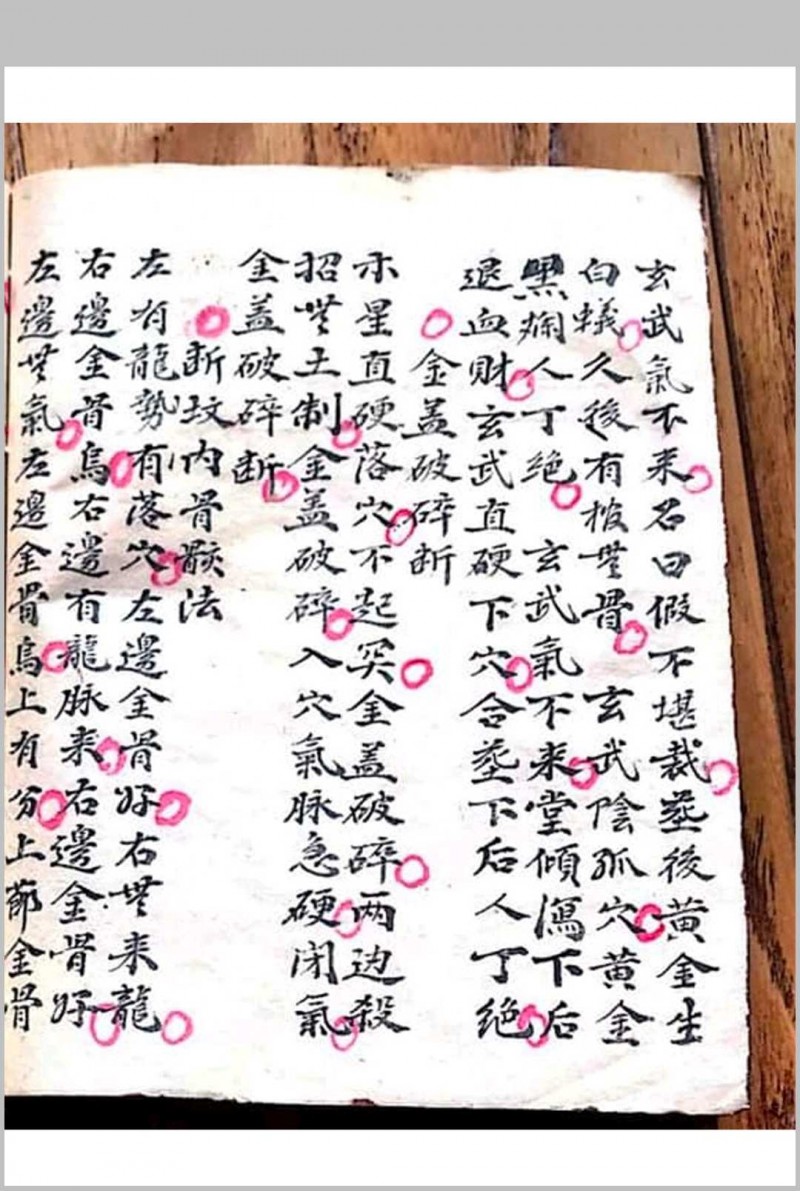 玄武氣不来名曰假不堪裁葬後黄金生
白蟻久後有棺無骨 玄武陰孤穴黄金
黑爛人丁絶 玄武氣不来堂傾瀉下后
退血财玄武直硬下穴合塟下后人丁绝
金盖破碎断
木星直硬落穴不起突金盖破碎两边殺
招無土制金盖破碎入穴氣脉急硬闭氣
金盖破碎断
断坟内骨骸法
左有龍勢有落穴左邊金骨好右無来龍
右邊金骨烏右邊有龍脉来右邊金骨好
左邊無氣左邊金骨烏上有分上節金骨